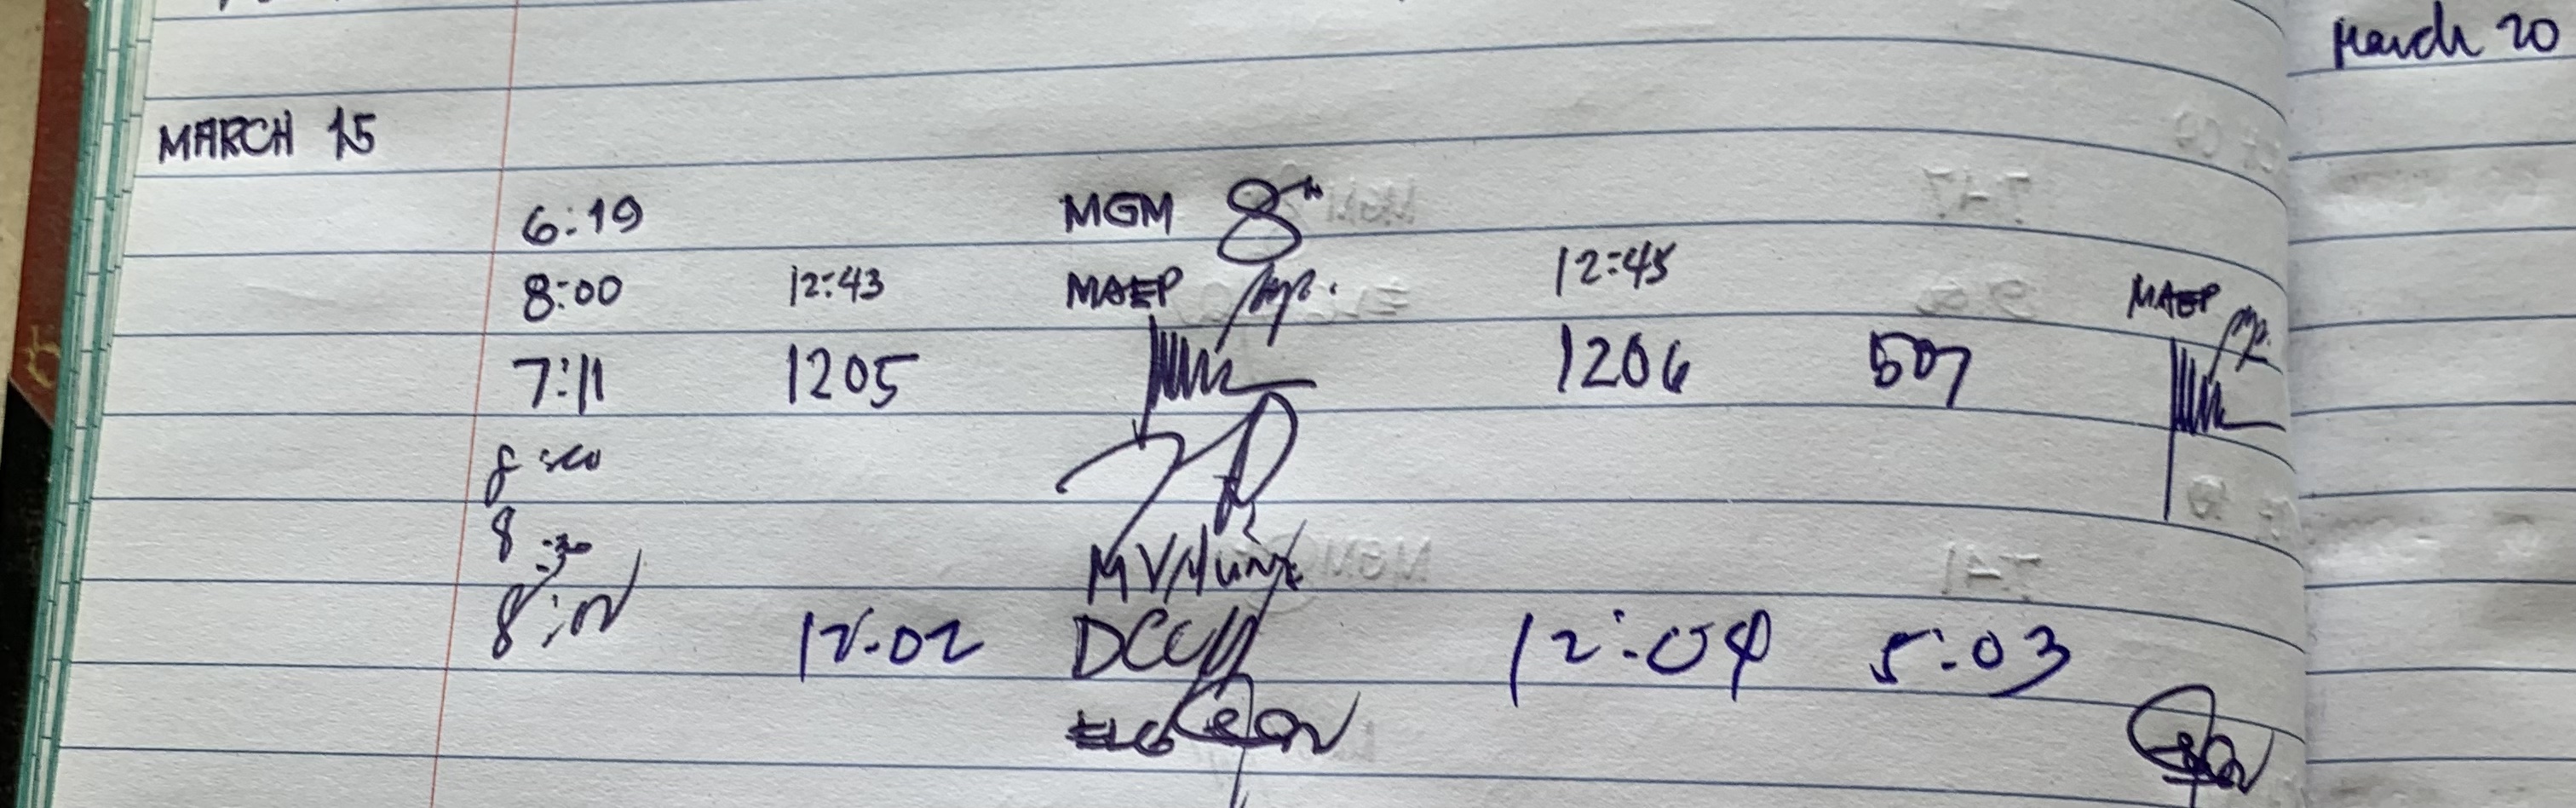 March 20
MARCH 15
6:19 MGM
8:00 12:43 MAEP 12:45 MAEP
7:11 1205 1206 507
8:00
8:30
8:02 12:02 DCC 12:04 5:03
ELG